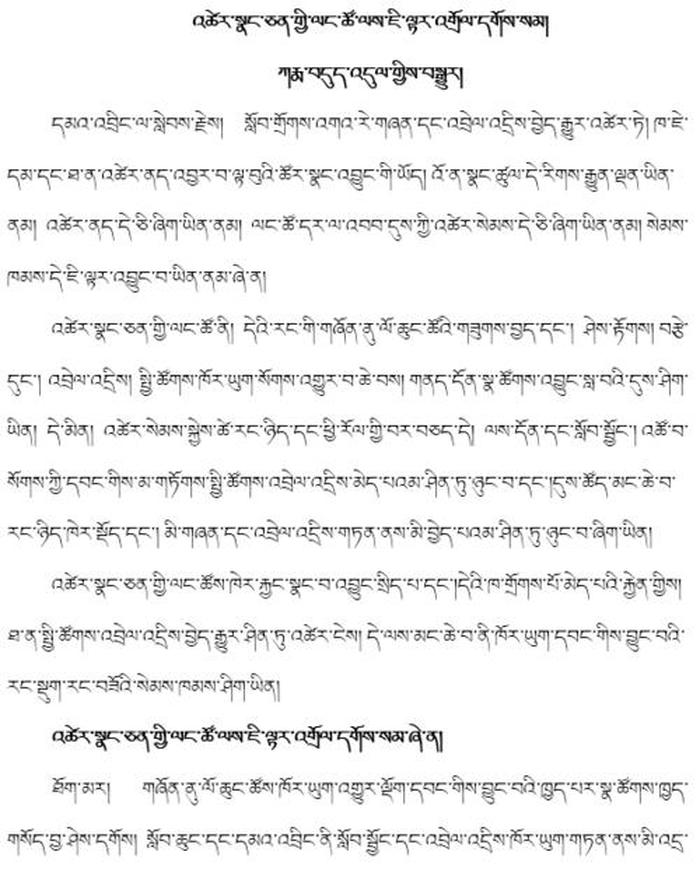 འཚེར་སྣང་ཅན་གྱི་ལང་ཚོ་ལས་ཇི་ལྟར་འགྲོལ་དགོས་སམ།
ཀརྨ་བདུད་འདུལ་གྱིས་བསྒྱུར།
དམའ་འབྲིང་ལ་སླེབས་རྗེས། སློབ་གྲོགས་འགའ་རེ་གཞན་དང་འབྲེལ་འདྲིས་བྱེད་རྒྱུར་འཚེར་ཏེ། ཁ་ཇེ་
དམ་དང་ཐ་ན་འཚེར་ནད་འབྱར་བ་ལྟ་བུའི་ཚོར་སྣང་འབྱུང་གི་ཡོད། འོ་ན་སྣང་ཚུལ་དེ་རིགས་རྒྱུན་ལྡན་ཡིན་
ནམ། འཚེར་ནད་དེ་ཅི་ཞིག་ཡིན་ནམ། ལང་ཚོ་དར་ལ་འབབ་དུས་ཀྱི་འཚེར་སེམས་དེ་ཅི་ཞིག་ཡིན་ནམ། སེམས་
ཁམས་དེ་ཇི་ལྟར་འབྱུང་བ་ཡིན་ནམ་ཞེ་ན།
འཚེར་སྣང་ཅན་གྱི་ལང་ཚོ་ནི། དེའི་རང་གི་གཞོན་ནུ་ལོ་ཆུང་ཚོའི་གཟུགས་བྱད་དང་། ཤེས་རྟོགས། བརྩེ་
དུང་། འབྲེལ་འདྲིས། སྤྱི་ཚོགས་ཁོར་ཡུག་སོགས་འགྱུར་བ་ཆེ་བས། གནད་དོན་སྣ་ཚོགས་འབྱུང་སླ་བའི་དུས་ཤིག་
ཡིན། དེ་མིན། འཚེར་སེམས་སྐྱེས་ཚེ་རང་ཉིད་དང་ཕྱི་རོལ་གྱི་བར་བཅད་དེ། ལས་དོན་དང་སློབ་སྦྱོང་། འཚོ་བ་
སོགས་ཀྱི་དབང་གིས་མ་གཏོགས་སྤྱི་ཚོགས་འབྲེལ་འདྲིས་མེད་པའམ་ཤིན་ཏུ་ཉུང་བ་དང་།དུས་ཚོད་མང་ཆེ་བ་
རང་ཉིད་ཁེར་སྡོད་དང་། མི་གཞན་དང་འབྲེལ་འདྲིས་གཏན་ནས་མི་བྱེད་པའམ་ཤིན་ཏུ་ཉུང་བ་ཞིག་ཡིན།
འཚེར་སྣང་ཅན་གྱི་ལང་ཚོས་ཁེར་རྐྱང་སྣང་བ་འབྱུང་སྲིད་པ་དང་།དེའི་ཁ་གྲོགས་པོ་མེད་པའི་རྐྱེན་གྱིས།
ཐ་ན་སྤྱི་ཚོགས་འབྲེལ་འདྲིས་བྱེད་རྒྱུར་ཤིན་ཏུ་འཚེར་ངེས། དེ་ལས་མང་ཆེ་བ་ནི་ཁོར་ཡུག་དབང་གིས་བྱུང་བའི་
རང་སྡུག་རང་བཟོའི་སེམས་ཁམས་ཤིག་ཡིན།
འཚེར་སྣང་ཅན་གྱི་ལང་ཚོ་ལས་ཇི་ལྟར་འགྲོལ་དགོས་སམ་ཞེ་ན།
ཐོག་མར། གཞོན་ནུ་ལོ་ཆུང་ཚོས་ཁོར་ཡུག་འགྱུར་ལྡོག་དབང་གིས་བྱུང་བའི་ཁྱད་པར་སྣ་ཚོགས་ཁྱད་
གསོད་བྱ་ཤེས་དགོས། སློབ་ཆུང་དང་དམའ་འབྲིང་ནི་སློབ་སྦྱོང་དང་འབྲེལ་འདྲིས་ཁོར་ཡུག་གཏན་ནས་མི་འདྲ་